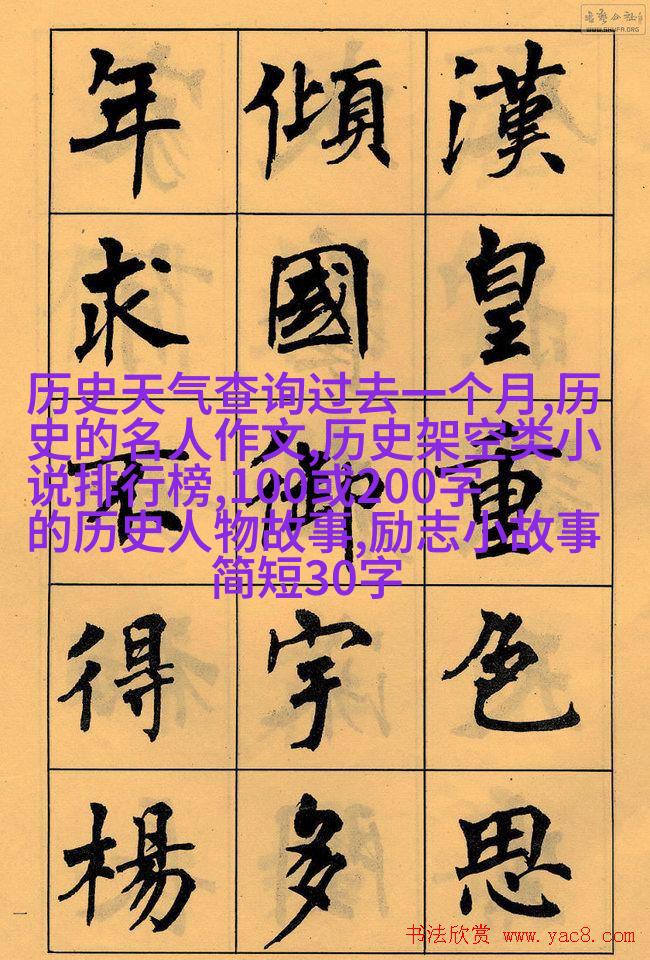 WWW.SHUFA.ORG
漢皇重色思
傾國御宇多
年求不得楊
历史天气查询过去一个月,历
史的名人作文,历史架空类小
说排行榜,100或200字
的历史人物故事,励志小故事
简短30字
一
书法欣赏 www.yac8.com